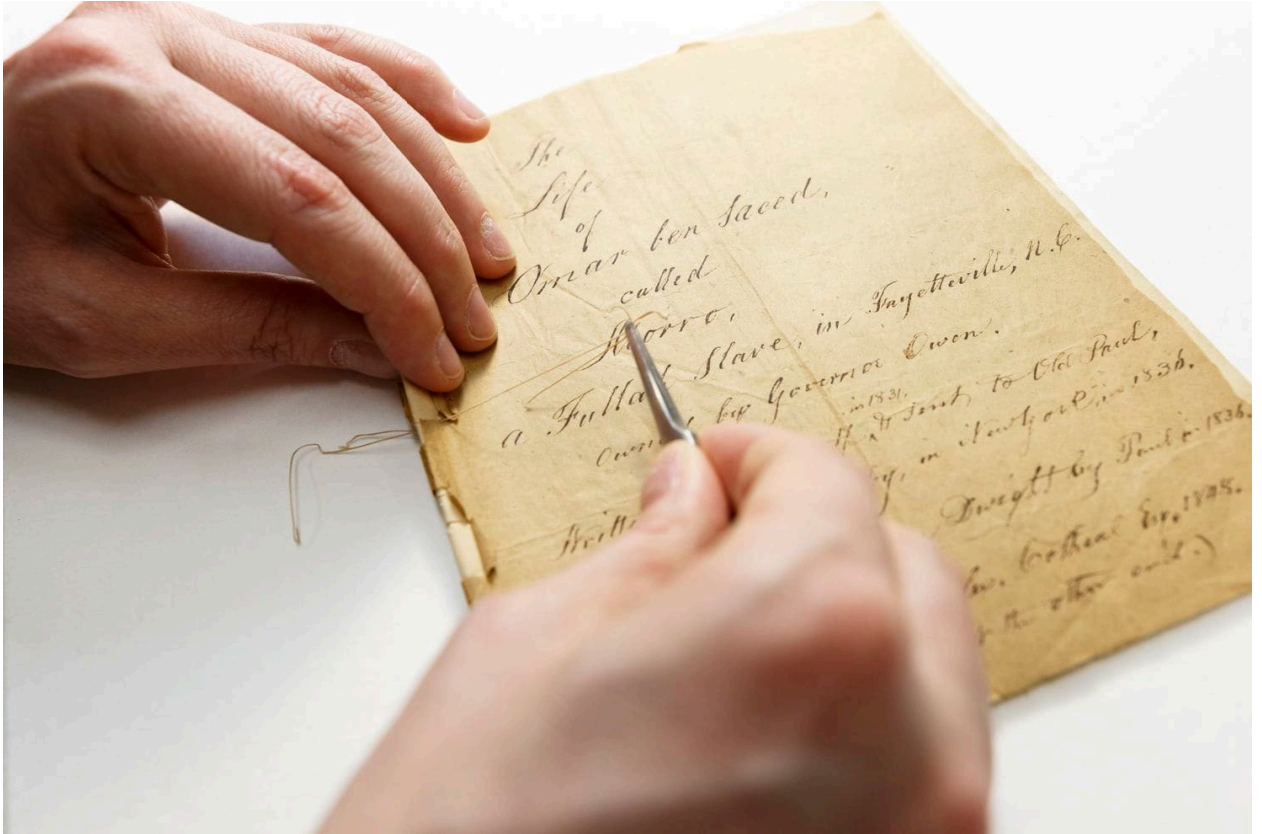 The
Life
of
Omar ben Saeed,
called
a Slave, in Fayetteville, N.C.
by Governor Owen.
in 1831.
& sent to Old Paul,
in 1836.
Dwight by Paul in 1836.
Cotheal Esq. 1848.
the other end.)